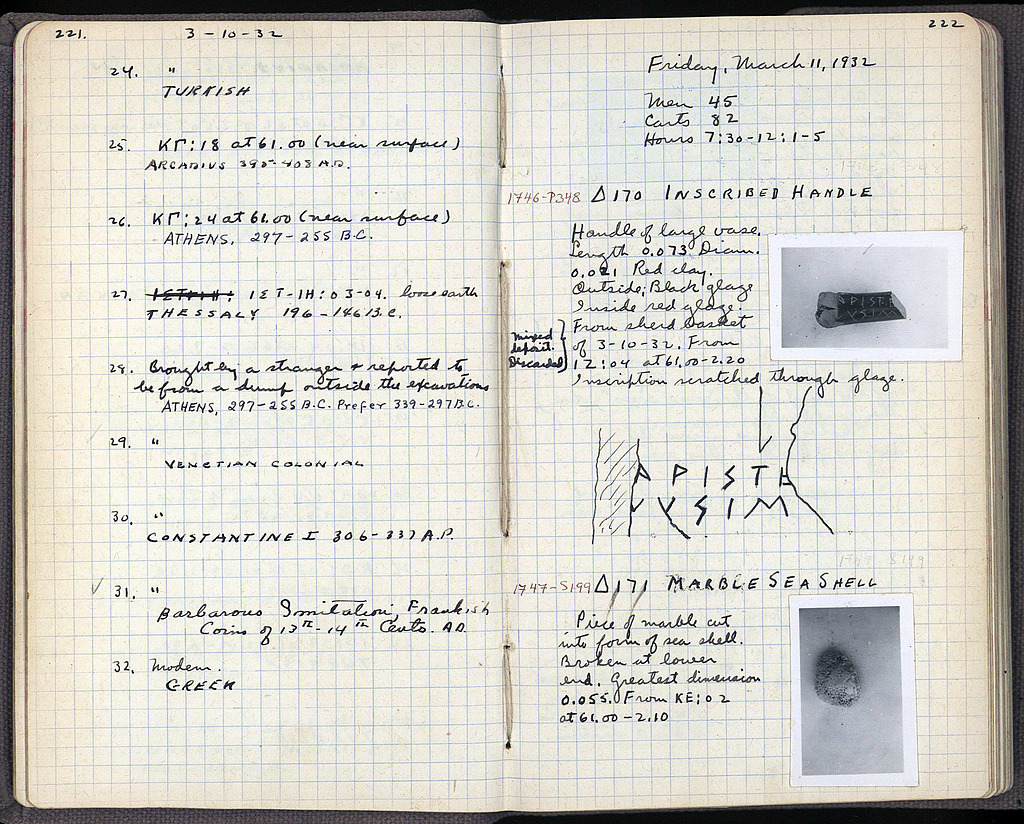 221.
3-10-32
24. "
TURKISH
25. ΚΓ:18 at 61.00 (near surface)
ARCADIUS 395-408 A.D.
26. ΚΓ:24 at 61.00 (near surface)
ATHENS, 297-255 B.C.
27. ΙΣΤ-ΙΗ: 03-04. loose earth
THESSALY 196-146 B.C.
28. Brought by a stranger & reported to
be from a dump outside the excavations
ATHENS, 297-255 B.C. Prefer 339-297 B.C.
29. "
VENETIAN COLONIAL
30. "
CONSTANTINE I 306-337 A.D.
✓ 31. "
Barbarous Imitation, Frankish
Coins of 13th-14th Cents. A.D.
32. Modern.
GREEK
222
Friday, March 11, 1932
Men 45
Carts 82
Hours 7:30-12; 1-5
1746-P348 Δ170 INSCRIBED HANDLE
Handle of large vase.
Length 0.073 Diam.
0.021 Red clay.
Outside; Black glaze
Inside red glaze.
From sherd basket
of 3-10-32. From
12:04 at 61.00-2.20
mixed
deposit.
Discarded
Inscription scratched through glaze.
ΑΡΙSΤ
VSIM
1747-S199 Δ171 MARBLE SEA SHELL
Piece of marble cut
into form of sea shell.
Broken at lower
end. Greatest dimension
0.055. From ΚΕ:02
at 61.00-2.10